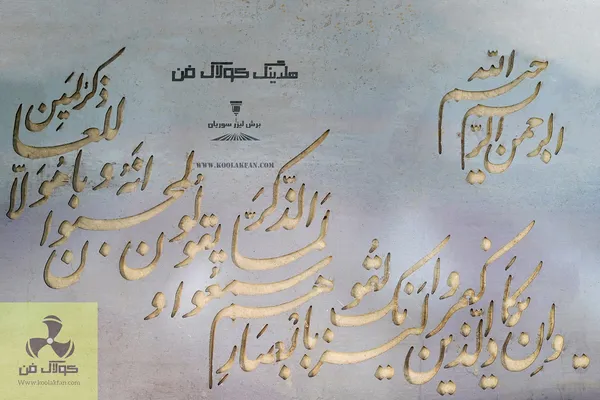 بسم الله الرحمن الرحیم
هلدینگ کولاک فن
برش لیزر سوریان
WWW.KOOLAKFAN.COM
وان یکاد الذین کفروا لیزلقونک بابصارهم لما سمعوا الذکر و یقولون انه لمجنون و ما هو الا ذکر للعالمین
کولاک فن
www.koolakfan.com